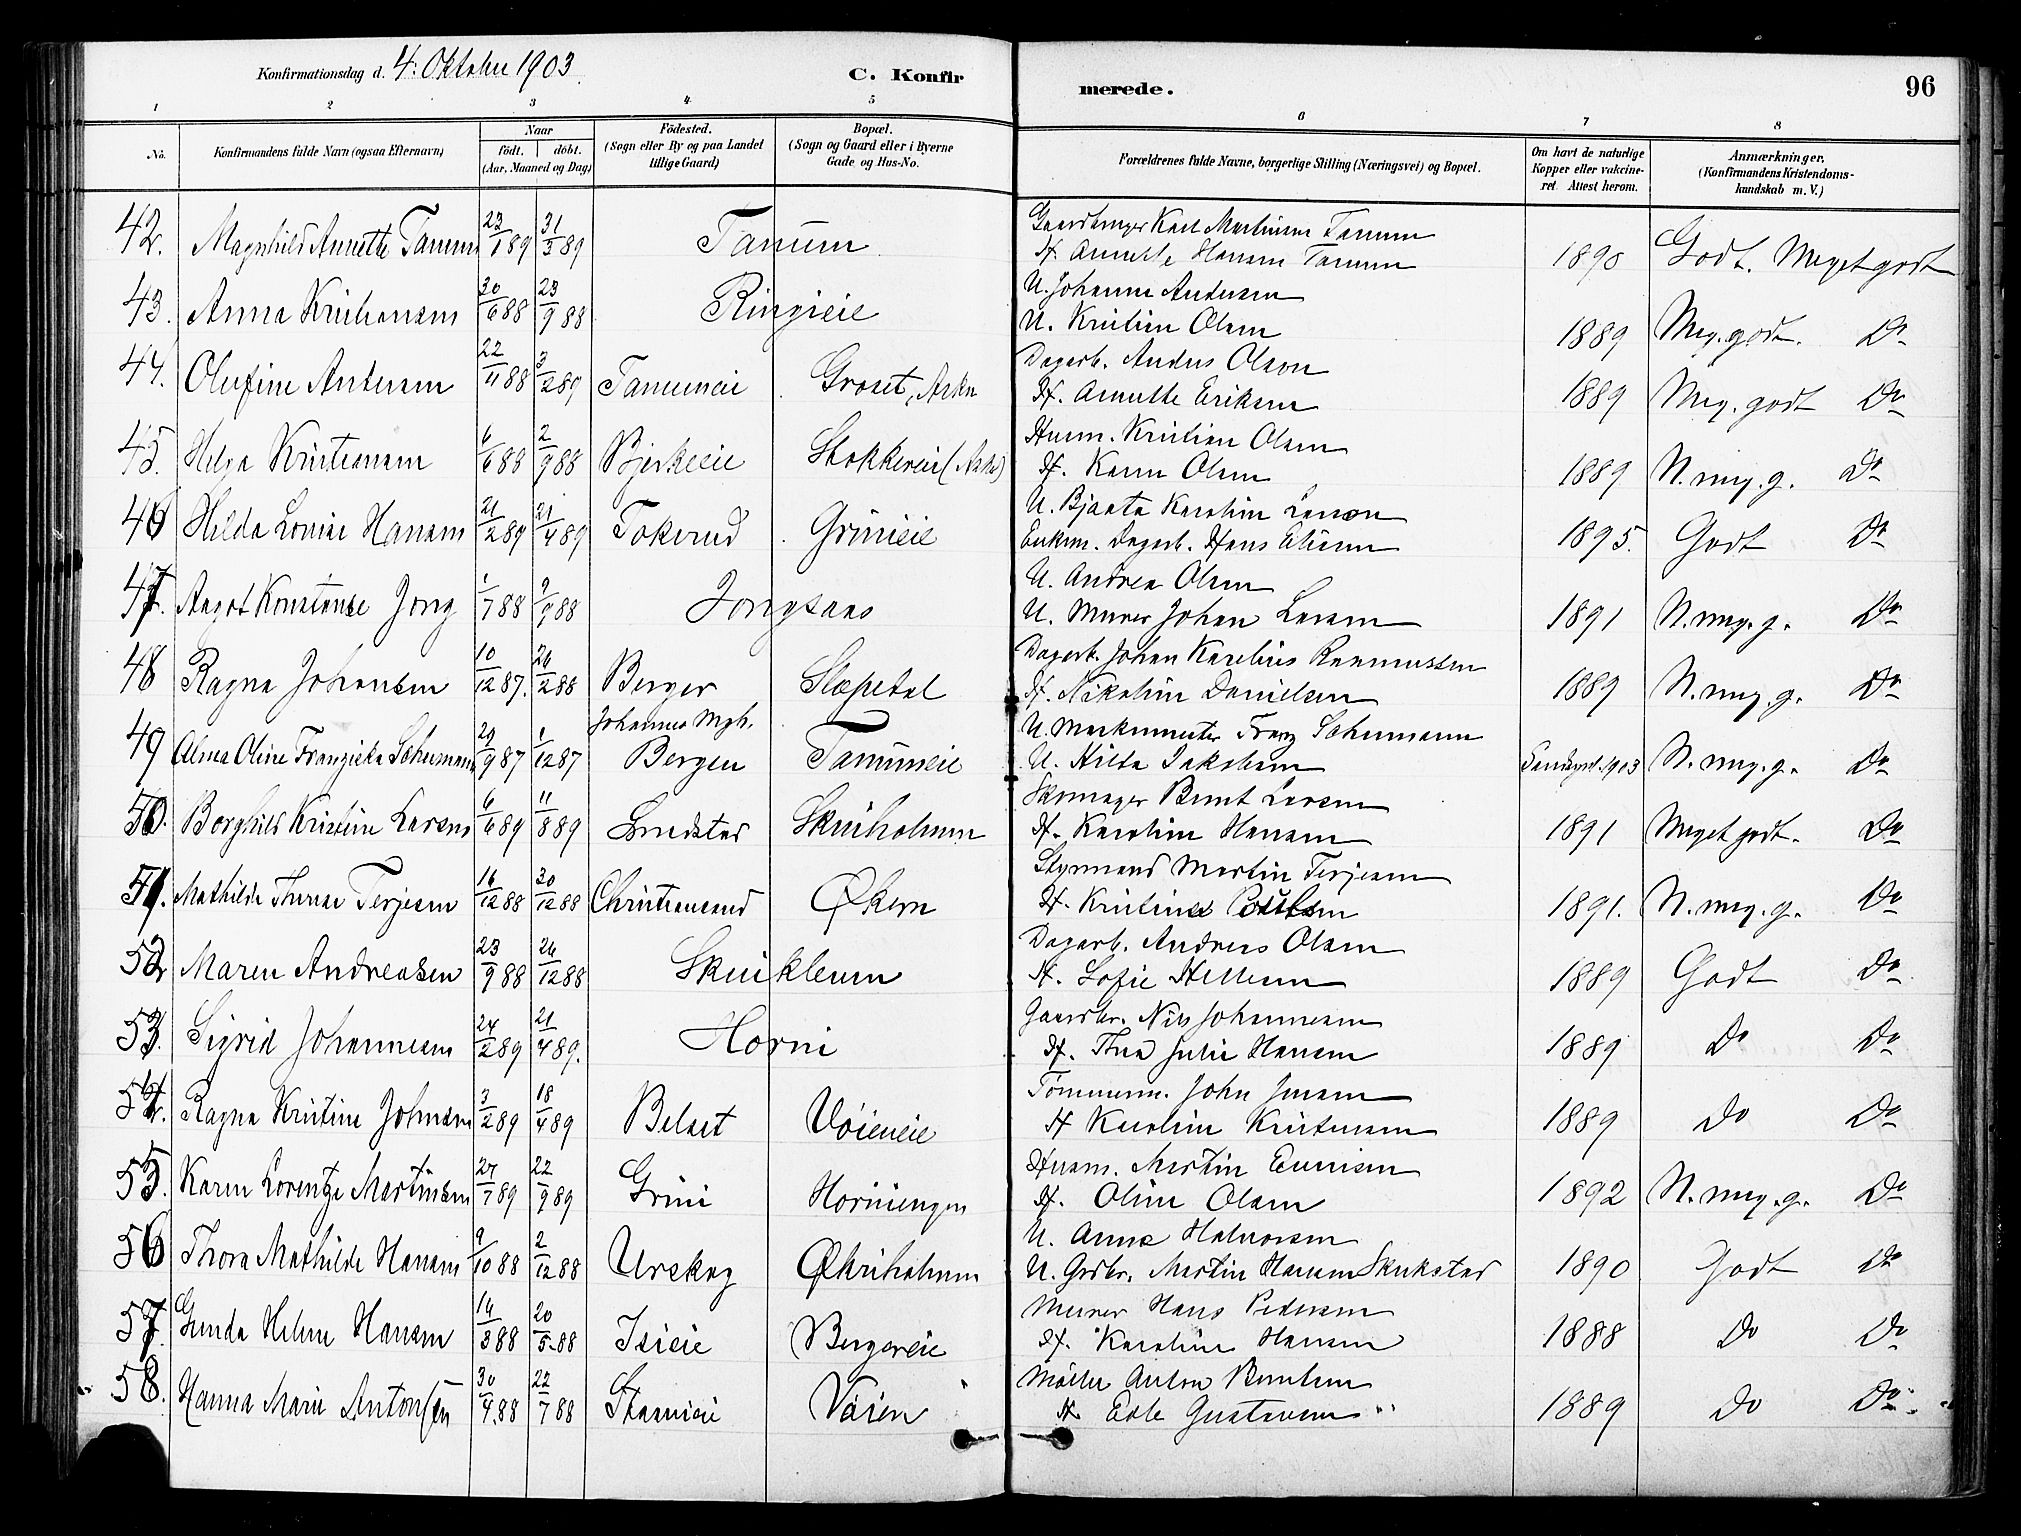 Konfirmationsdag d. 4. Oktober 1903. C. Konfirmerede. 96
1 2 3 4 5 6 7 8
No. Konfirmandens fulde Navn (ogsaa Efternavn) Naar födt. döbt. (Aar, Maaned og Dag) Födested. (Sogn eller By og paa Landet tillige Gaard) Bopæl. (Sogn og Gaard eller i Byerne Gade og Hus-No. Forældrenes fulde Navne, borgerlige Stilling (Næringsvei) og Bopæl. Om havt de naturlige Kopper eller vakcineret. Attest herom. Anmærkninger. (Konfirmandens Kristendomskundskab m. V.)
42. Magnhild Annette Tanum 23/1 89 31/3 89 Tanum Gaardbruger Karl Martinsen Tanum
H. Annette Hansen Tanum 1890 Godt. Meget godt
43. Anna Kristiansen 30/6 88 23/9 88 Ringieie U. Johanne Andersen
U. Kristian Olsen 1889 Meg. godt. Do
44. Olufine Andersen 22/11 88 3/2 89 Tanumeie Groset, Asker Dagarb. Anders Olson
H. Annette Eriksen 1889 Meg. godt Do
45. Helga Kristiansen 6/6 88 2/9 88 Bjerkeeie Stokkereie (Asker) Husm. Kristian Olsen
H. Karen Olsen 1889 N. meg. g. Do
46 Hilda Louise Hansen 21/2 89 21/4 89 Tokerud Grinieie U. Bjaata Karoline Larson
Enkem. Dagarb. Hans 1895. Godt Do
47. Aagot Konstanse Jong 1/7 88 9/9 88 Jongsaas U. Andrea Olsen
U. Murer Johan Larsen 1891 N. meg. g. Do
48 Ragna Johansen 10/12 87. 26/2 88 Berger Slæpetal Dagarb. Johan Karelius Rasmussen
H. Nikoline Danielsen 1889 N. meg. g. Do
49 Alma Oline Franziska Schumann 29/9 87 1/12 87 Johannes Mgh. Bergen Tanumeie U. Værkmester Franz Schumann
U. Hilda Jakobsen 1903 N. meg. g. Do
50. Borghild Kristine Larsen 6/6 89 11/8 89 Skuiholmen Skomager Bernt Larsen
H. Karoline Hansen 1891 Meget godt. Do
51. Mathilde Therese Terjesen 16/12 88 30/12 88 Christiansand Økern Styrmand Martin Terjesen
H. Kristine 1891. N. meg. g. Do
52 Maren Andreasen 23/9 88 26/12 88 Skuikleven Dagarb. Andreas Olsen
H. Sofie Hellesen 1889 Godt Do
53. Sigrid Johannesen 24/2 89 21/4 89. Horni Gaardbr. Nils Johannesen
H. Thea Julie Hansen 1889 Do Do
54. Ragna Kristine Johnsen 3/2 89 18/4 89 Belset Vøieneie Tømmerm. John Jensen
H Karoline Kristensen 1889 Do Do
55. Karen Lorentze Martinsen 27/7 89 22/9 89 Grini Horniengen Husm. Martin
H. Oline Olsen 1892 N. meg. g. Do
56 Thora Mathilde Hansen 9/10 88 2/12 88 Urskog Økriholmen U. Anne Halvorsen
U. Grdbr. Martin Hansen 1890 Godt Do
57. Gunda Helene Hansen 14/3 88 20/5 88 Isieie Bergereie Murer Hans Pedersen
H. Karoline Hansen 1888 Do Do
58. Hanna Marie Antonsen 30/4 88 22/7 88 Vøien Møller Anton Berntsen
H. Edle Gustavsen 1889 Do Do